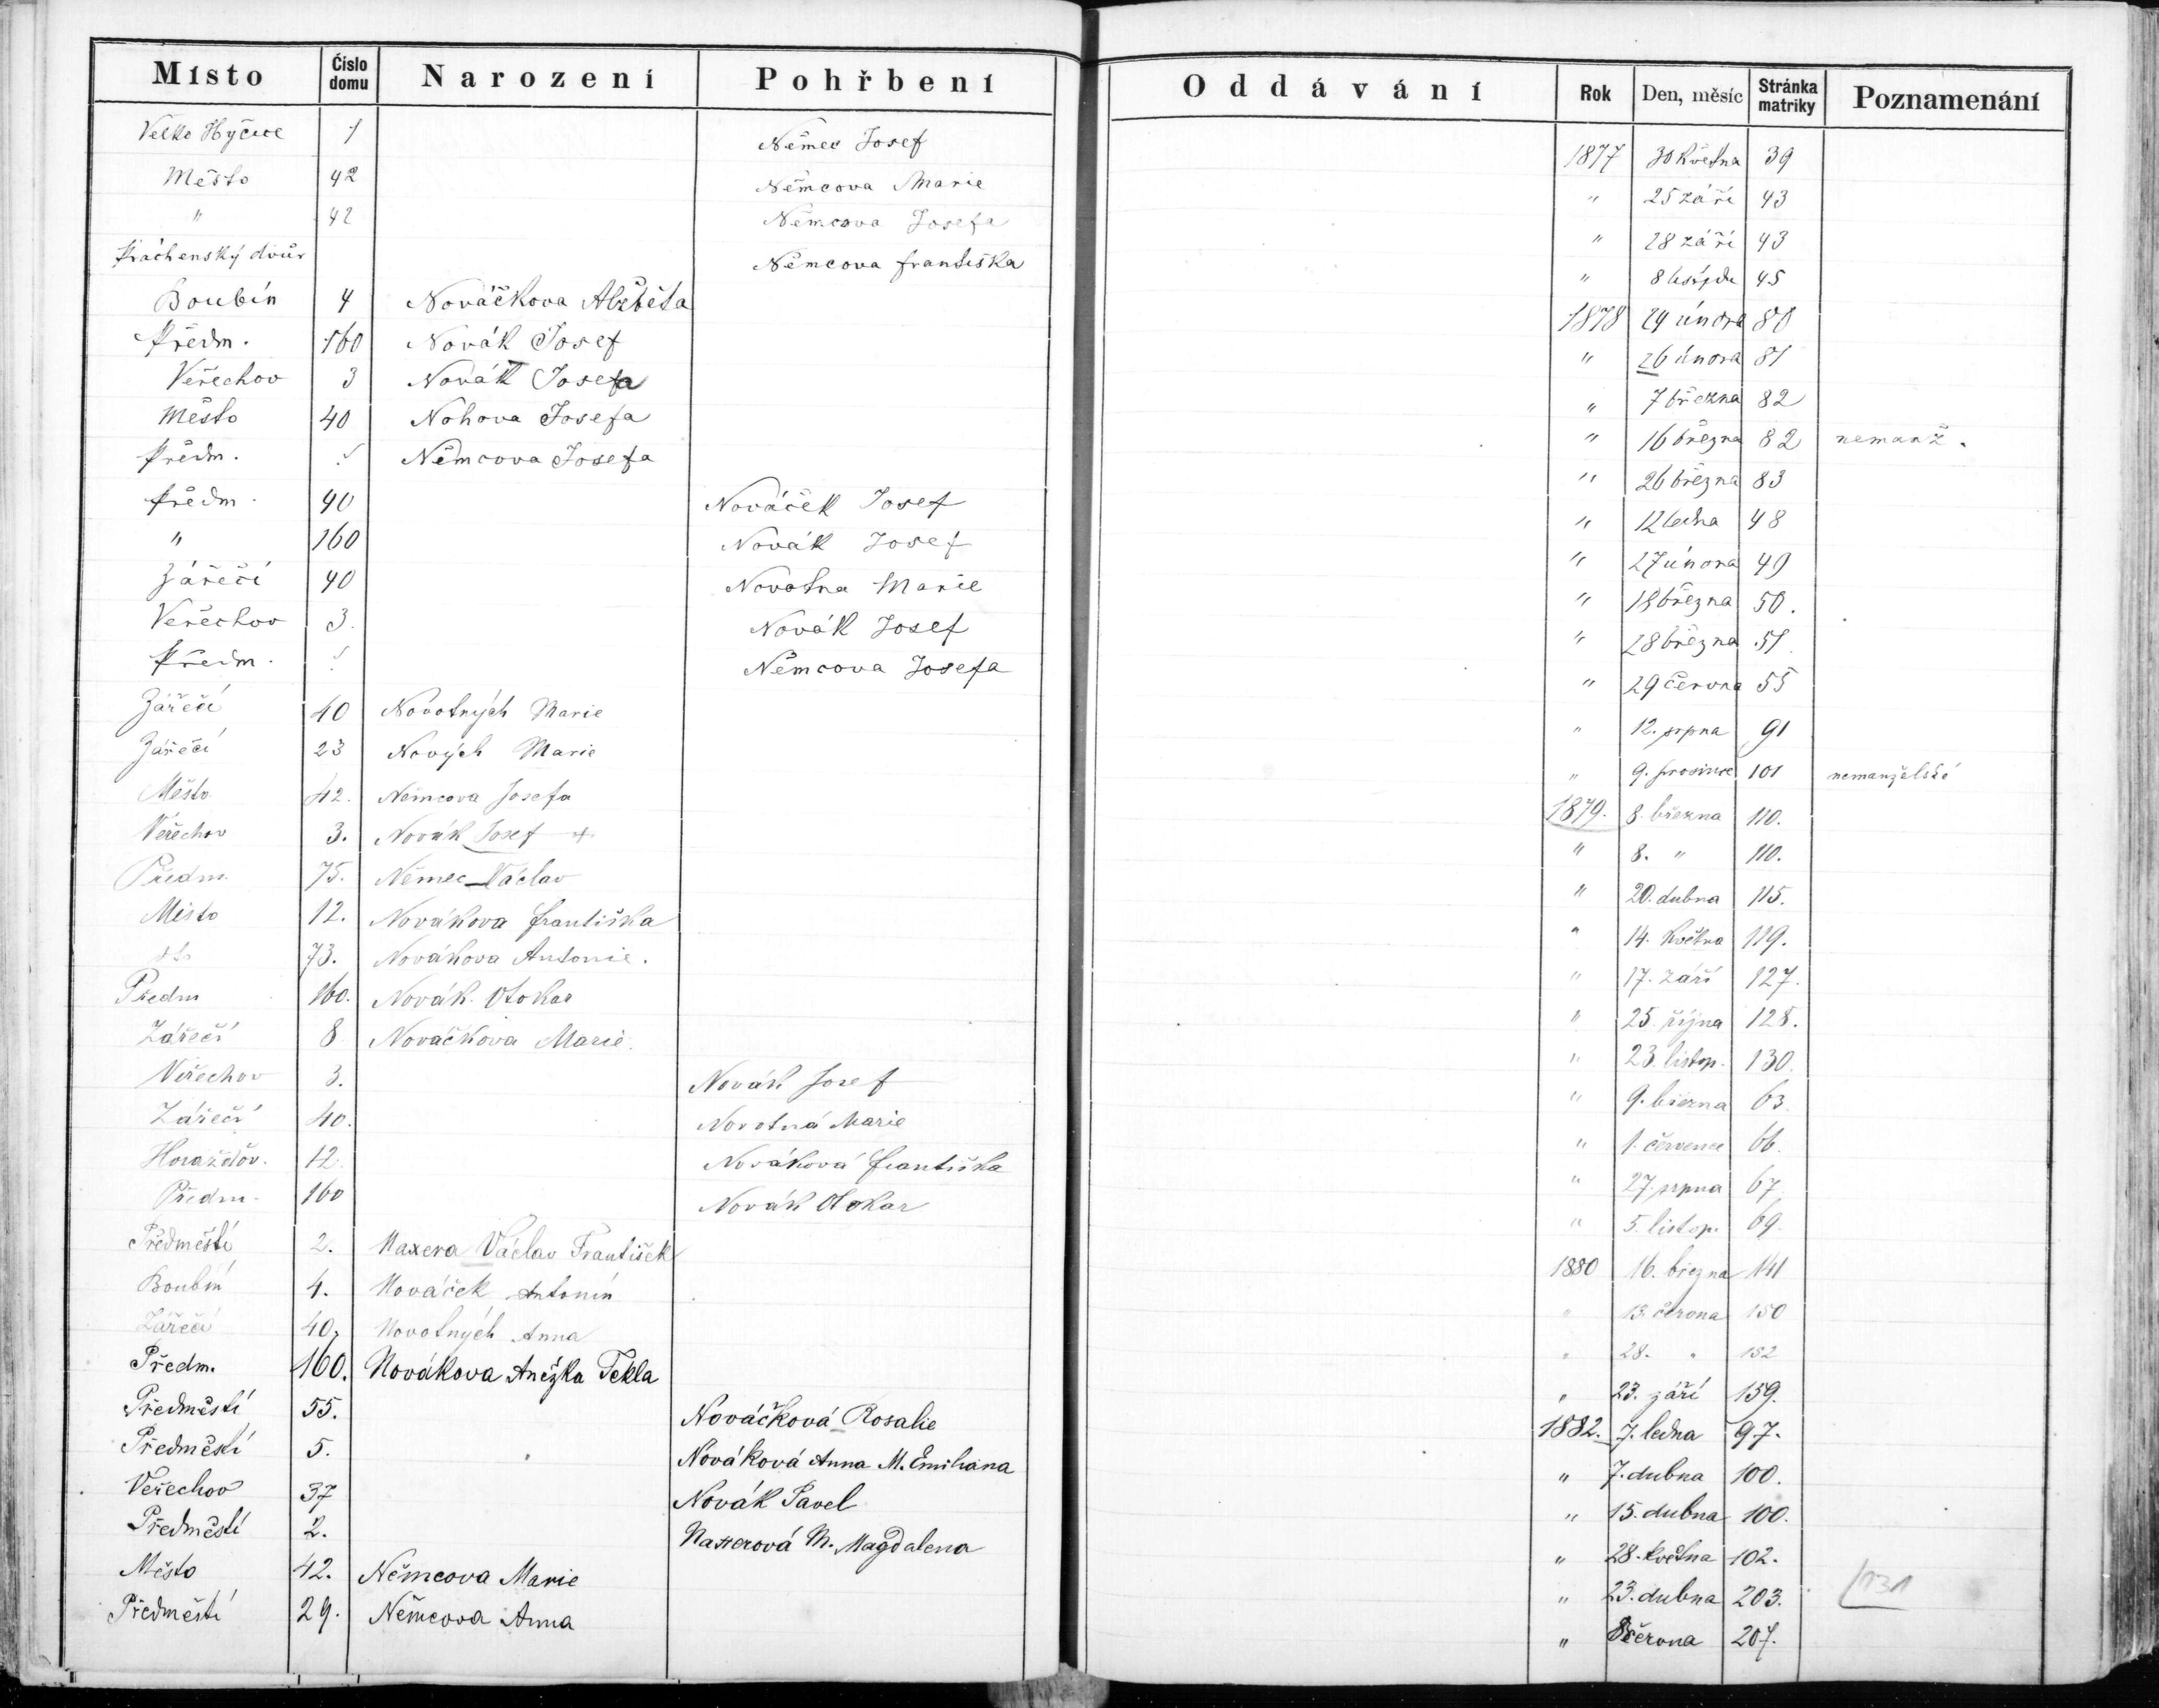 Místo Číslo domu Narození Pohřbení Oddávání Rok Den, měsíc Stránka matriky Poznamenání
Velko Hyčice 1 Němec Josef 1877 30 května 39
Město 42 Němcova Marie " 25 září 43
" 42 Němcova Josefa " 28 září 43
Práchenský dvůr Němcova Františka " 8 45
Boubín 4 Nováčkova Alžběta 1878 24 února 80
Předm. 160 Novák Josef " 26 února 81
Veřechov 3 Novák Josefa " 7 března 82
Město 40 Nohova Josefa " 16 března 82 nemanž.
Předm. Němcova Josefa " 26 března 83
Předm. 40 Nováček Josef " 12 ledna 48
" 160 Novák Josef " 27 února 49
Zářečí 40 Novotna Marie " 18 března 50.
Veřechov 3. Novák Josef " 28 března 51
Předm. Němcova Josefa " 29 června 55
Zářečí 40 Novotných Marie " 12. srpna 91
Zářečí 23 Nových Marie " 9. prosince 101 nemanželské
Město 42. Němcova Josefa 1879. 8. března 110.
Veřechov 3. Novák Josef + " 8. " 110.
Předm. 75. Němec Václav " 20. dubna 115.
Město 12. Novákova Františka " 14. května 119.
dto 73. Novákova Antonie. " 17. září 127.
Předm 160. Novák Otokar " 25. října 128.
Zářečí 8 Nováčkova Marie. " 23. listop. 130.
Veřechov 3. Novák Josef " 9. března 63.
Zářečí 40. Novotná Marie " 1. července 66.
Horažďov. 12. Nováková Františka " 27. srpna 67
Předm. 160 Novák Otokar " 5. listop. 69.
Předměstí 2. Naxera Václav František 1880 16. března 141
Boubín 4. Nováček Antonín " 13. června 150
Zářečí 40. Novotných Anna " 28. " 152
Předm. 160. Novákova Anežka Tekla " 23. září 159.
Předměstí 55. Nováčková Rosalie 1882. 7. ledna 97.
Předměstí 5. Nováková Anna M. Emiliana " 7. dubna 100.
Veřechov 37 Novák Pavel " 15. dubna 100.
Předměstí 2. Naxerová M. Magdalena " 28. května 102.
Město 42. Němcova Marie " 23. dubna 203. 131
Předměstí 29. Němcova Anna " června 207.